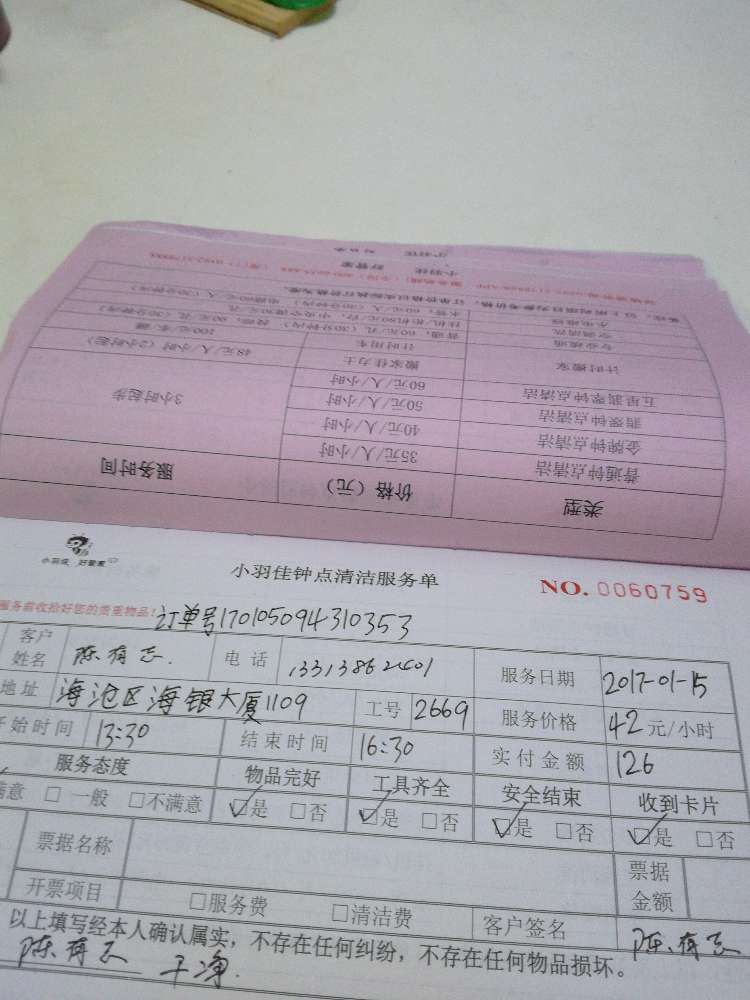 小羽佳 好管家
小羽佳钟点清洁服务单
NO. 0060759
服务前收拾好您的贵重物品！ 订单号170105094310353
客户姓名 陈有志 电话 13313862401 服务日期 2017-01-15
地址 海沧区海银大厦1109 工号 2669 服务价格 42元/小时
开始时间 13:30 结束时间 16:30 实付金额 126
服务态度 物品完好 工具齐全 安全结束 收到卡片
满意 □一般 □不满意 ☑是 □否 ☑是 □否 ☑是 □否 ☑是 □否
票据名称 票据金额
开票项目 □服务费 □清洁费 客户签名 陈有志
以上填写经本人确认属实，不存在任何纠纷，不存在任何物品损坏。
陈有志 干净.
类型 价格（元） 服务时间
普通钟点清洁 35元/人/小时 3小时起步
金牌钟点清洁 40元/人/小时
翡翠钟点清洁 50元/人/小时
五星翡翠钟点清洁 60元/人/小时
计时搬家 搬家佳力士 48元/人/小时（2小时起）
计时用车 100元/车/趟
专业疏通
空调清洗
水电维修
小羽佳 好管家